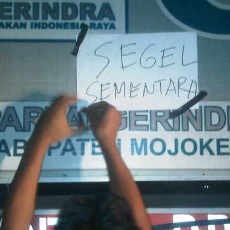 ERINDRA
AKAN INDONESIA RAYA
SEGEL
SEMENTARA
PARTAI GERINDR
ABUPATEN MOJOKE